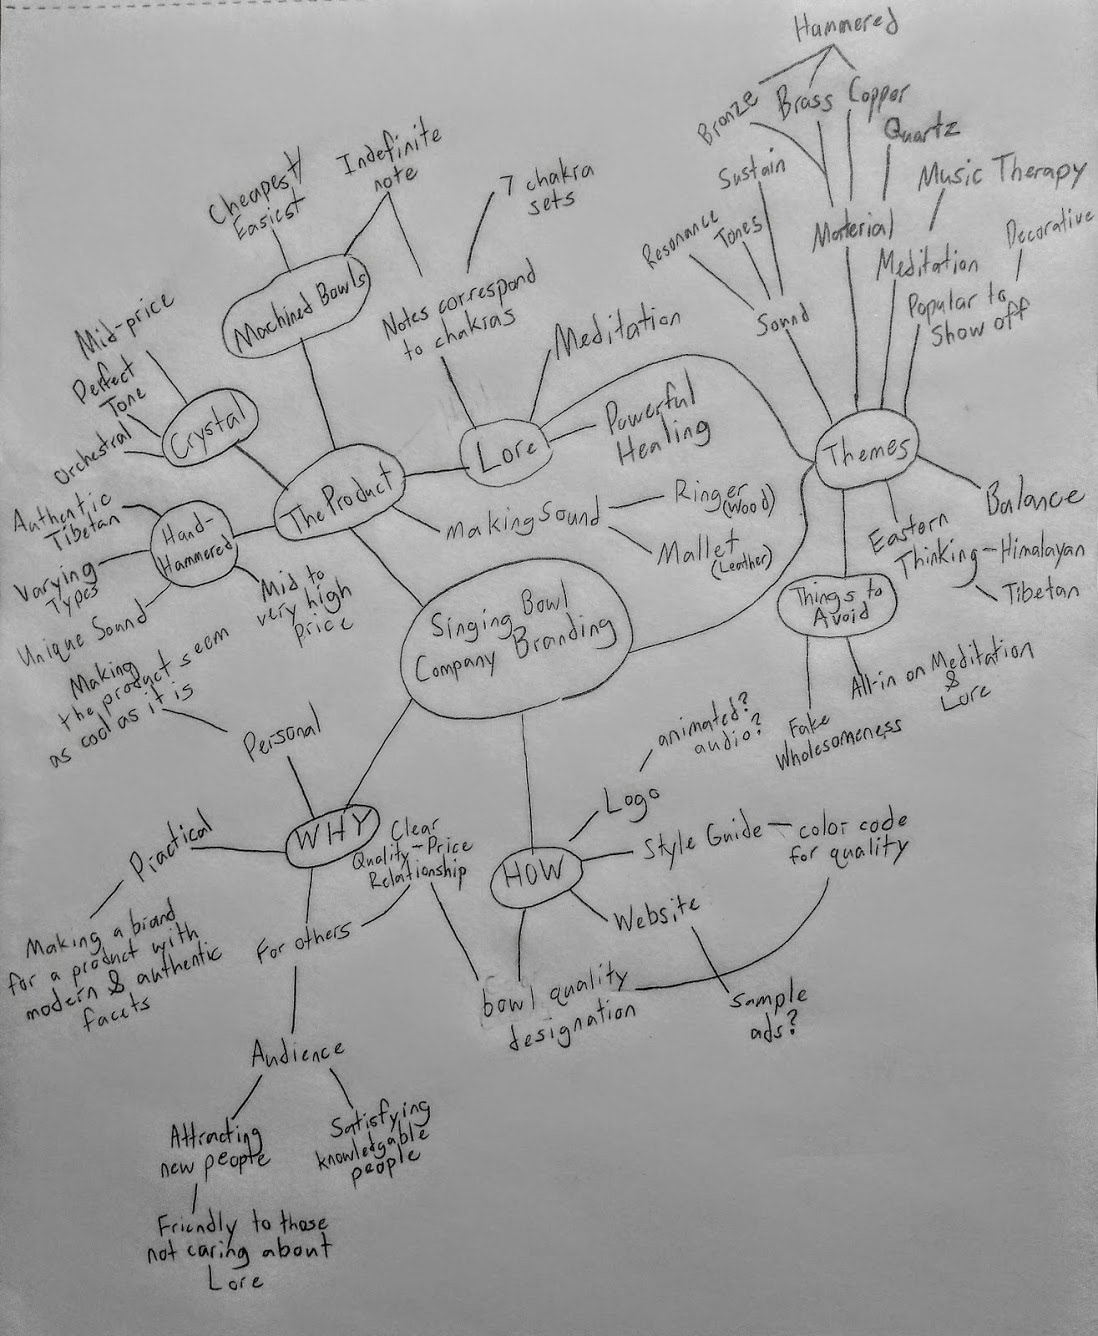 Hammered
Bronze
Brass
Copper
Quartz
Sustain
Music Therapy
Resonance
Tones
Material
Decorative
Meditation
Sound
Popular to
Show off
Themes
Balance
Eastern
Thinking - Himalayan
Tibetan
Things to
Avoid
All-in on Meditation
&
Lore
Fake
Wholesomeness
Cheapest/
Easiest
Indefinite
note
7 chakra
sets
Machined Bowls
Notes correspond
to chakras
Meditation
Mid-price
Perfect
Tone
Orchestral
Crystal
Lore
Powerful
Healing
The Product
Making Sound
Ringer
(Wood)
Mallet
(Leather)
Authentic
Tibetan
Hand-
Hammered
Varying
Types
Unique Sound
Mid to
very high
price
Singing Bowl
Company Branding
Making
the product seem
as cool as it is
Personal
WHY
Practical
Making a brand
for a product with
modern & authentic
facets
Clear
Quality-Price
Relationship
For others
Audience
Attracting
new people
Satisfying
knowledgable
people
Friendly to those
not caring about
Lore
animated?
audio?
Logo
HOW
Style Guide - color code
for quality
Website
Sample
ads?
bowl quality
designation